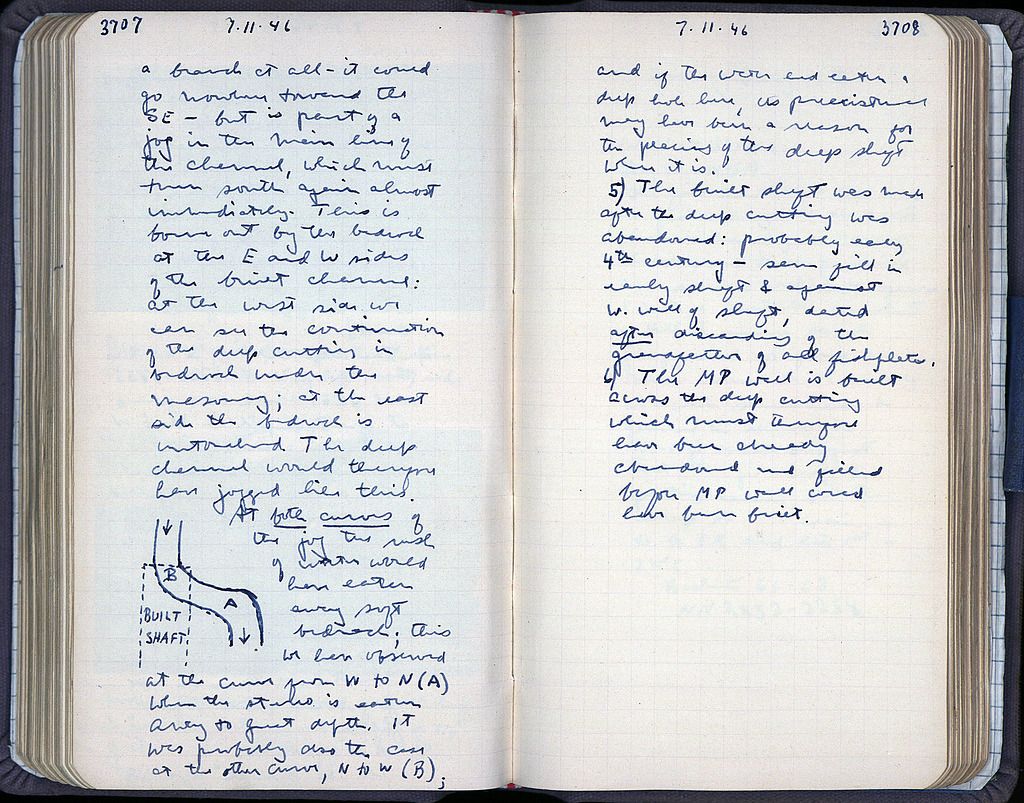 3707
7.11.46
a branch at all – it could
go nowhere toward the
SE – but is part of a
jog in the main line of
the channel, which must
turn south again almost
immediately. This is
borne out by the bedrock
at the E and W sides
of the built channel:
at the west side we
can see the continuation
of the deep cutting in
bedrock under the
masonry; at the east
side the bedrock is
untouched. The deep
channel would therefore
have jogged like this.
At both curves of
the jog the rush
of water would
have eaten
away soft
bedrock; this
we have observed
B
A
BUILT
SHAFT
at the curve from W to N (A)
where the stereo is eaten
away to great depth. It
was probably also the case
at the other curve, N to W (B);
7.11.46
3708
and if the water had eaten a
deep hole here, its preexistence
may have been a reason for
the placing of the deep shaft
where it is.
5) The built shaft was made
after the deep cutting was
abandoned: probably early
4th century – some fill in
early shaft & against
W. wall of shaft, dated
after discarding of the
grandfather of all fishplates.
6) The MP wall is built
across the deep cutting
which must therefore
have been already
abandoned and filled
before MP wall could
have been built.